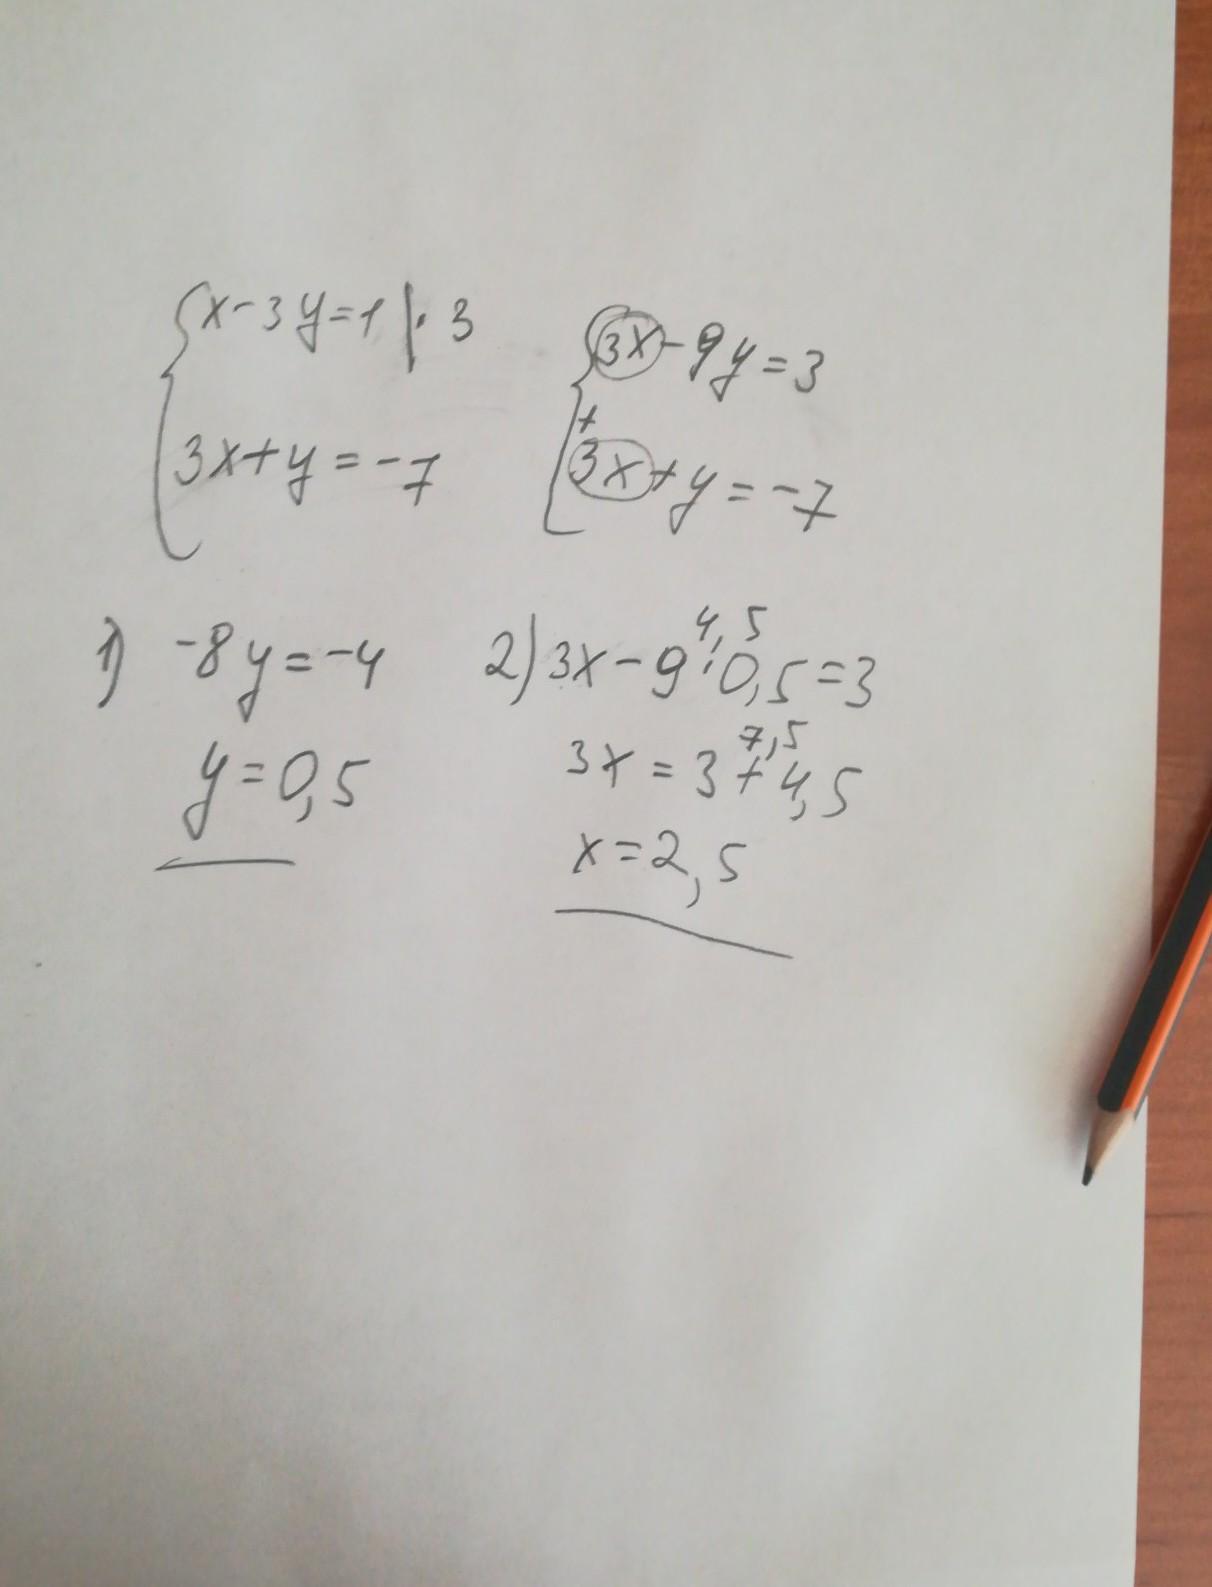 x-3y=1|·3
3x+y=-7
3x-9y=3
+
3x+y=-7
1) -8y=-4
y=0,5
4,5
2) 3x-9·0,5=3
7,5
3x=3+4,5
x=2,5